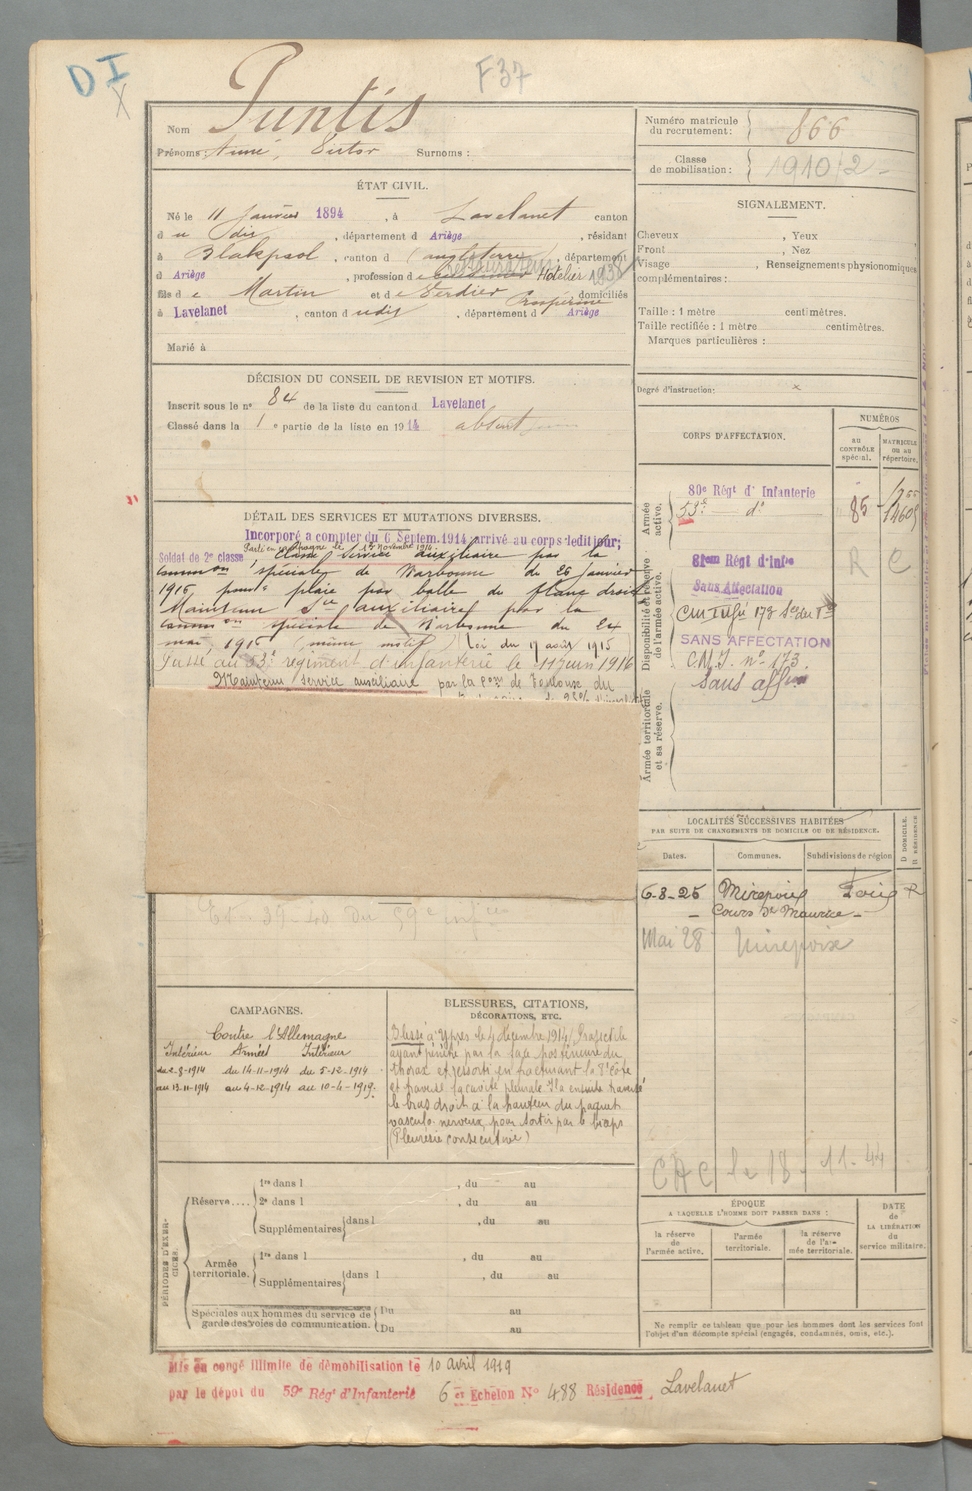 D I
X
F 37
Nom Puntis
Prénoms : Aimé, Victor Surnoms :
ÉTAT CIVIL.
Né le 11 Janvier 1894, à Lavelanet canton
d u dit, département d Ariège, résidant
à Blakpool, canton d (angleterre), département
d Ariège, profession d e restaurateur Hotelier
fils d e Martin et d e Verdier Prospérine domiciliés
à Lavelanet, canton d udit, département d Ariège
Marié à
DÉCISION DU CONSEIL DE REVISION ET MOTIFS.
Inscrit sous le nº 84 de la liste du canton d Lavelanet
Classé dans la 1 e partie de la liste en 1914 absent
DÉTAIL DES SERVICES ET MUTATIONS DIVERSES.
Incorporé a compter du 6 Septem. 1914 arrivé au corps ledit jour;
Parti en campagne le novembre 1914.
Soldat de 2e classe, Classé Service auxiliaire par la
Common spéciale de Narbonne du 26 Janvier
1915, pour plaie par balle du flanc droit
Maintenu Sce auxiliaire par la
Common spéciale de Narbonne du 24
mai 1915 (même motif) (loi du 17 août 1915
Passé au 53e régiment d'infanterie le 11 juin 1916
Maintenu Service auxiliaire par la Com de Toulouse du
Et 39-40 du 59e infrie
CAMPAGNES.
Contre l'Allemagne
Intérieur Armées Intérieur
du 2-8-1914 du 14-11-1914 du 5-12-1914
au 13-11-1914 au 4-12-1914 au 10-4-1919.
BLESSURES, CITATIONS,
DÉCORATIONS, ETC.
Blessé à Ypres le 4 décembre 1914 (Projectile
ayant pénétré par la face postérieure du
thorax et ressorti en fracturant la 8e côte
et traversé la cavité pleurale. Il a ensuite traversé
le bras droit à la hauteur du paquet
vasculo nerveux pour sortir par le biceps
(Pleurésie consécutive)
PÉRIODES D'EXERCICES.
Réserve....
1re dans l , du au
2e dans l , du au
Supplémentaires dans l , du au
Armée territoriale.
1re dans l , du au
Supplémentaires dans l , du au
Spéciales aux hommes du service de
garde des voies de communication.
Du au
Du au
Numéro matricule
du recrutement : 866
Classe
de mobilisation : 1910/2
SIGNALEMENT.
Cheveux , Yeux
Front , Nez
Visage , Renseignements physionomiques
complémentaires :
Taille : 1 mètre centimètres.
Taille rectifiée : 1 mètre centimètres.
Marques particulières :
Degré d'instruction: x
CORPS D'AFFECTATION.
NUMÉROS
au
CONTRÔLE
spécial.
MATRICULE
ou au
répertoire.
Armée
active.
80e Régt d' Infanterie
53e dº 85
Disponibilité et réserve
de l'armée active.
81em Régt d'Infie
Sans Affectation
R C
SANS AFFECTATION
C.M.I. nº 173.
Sans affon
Armée territoriale
et sa réserve.
LOCALITÉS SUCCESSIVES HABITÉES
PAR SUITE DE CHANGEMENTS DE DOMICILE OU DE RÉSIDENCE.
Dates. Communes. Subdivisions de région
D DOMICILE.
R RÉSIDENCE
6-3-25 Mirepoix Foix R
Cours St Maurice
Mai 28 Mirepoix
CAC le 18-11-44
ÉPOQUE
A LAQUELLE L'HOMME DOIT PASSER DANS :
la réserve
de
l'armée active.
l'armée
territoriale.
la réserve
de l'ar-
mée territoriale.
DATE
de
LA LIBÉRATION
du
service militaire.
Ne remplir ce tableau que pour les hommes dont les services font
l'objet d'un décompte spécial (engagés, condamnés, omis, etc.).
Mis en congé illimité de démobilisation le 10 avril 1919
par le dépôt du 59e Régt d'Infanterie 6 et Echelon Nº 488 Résidence Lavelanet